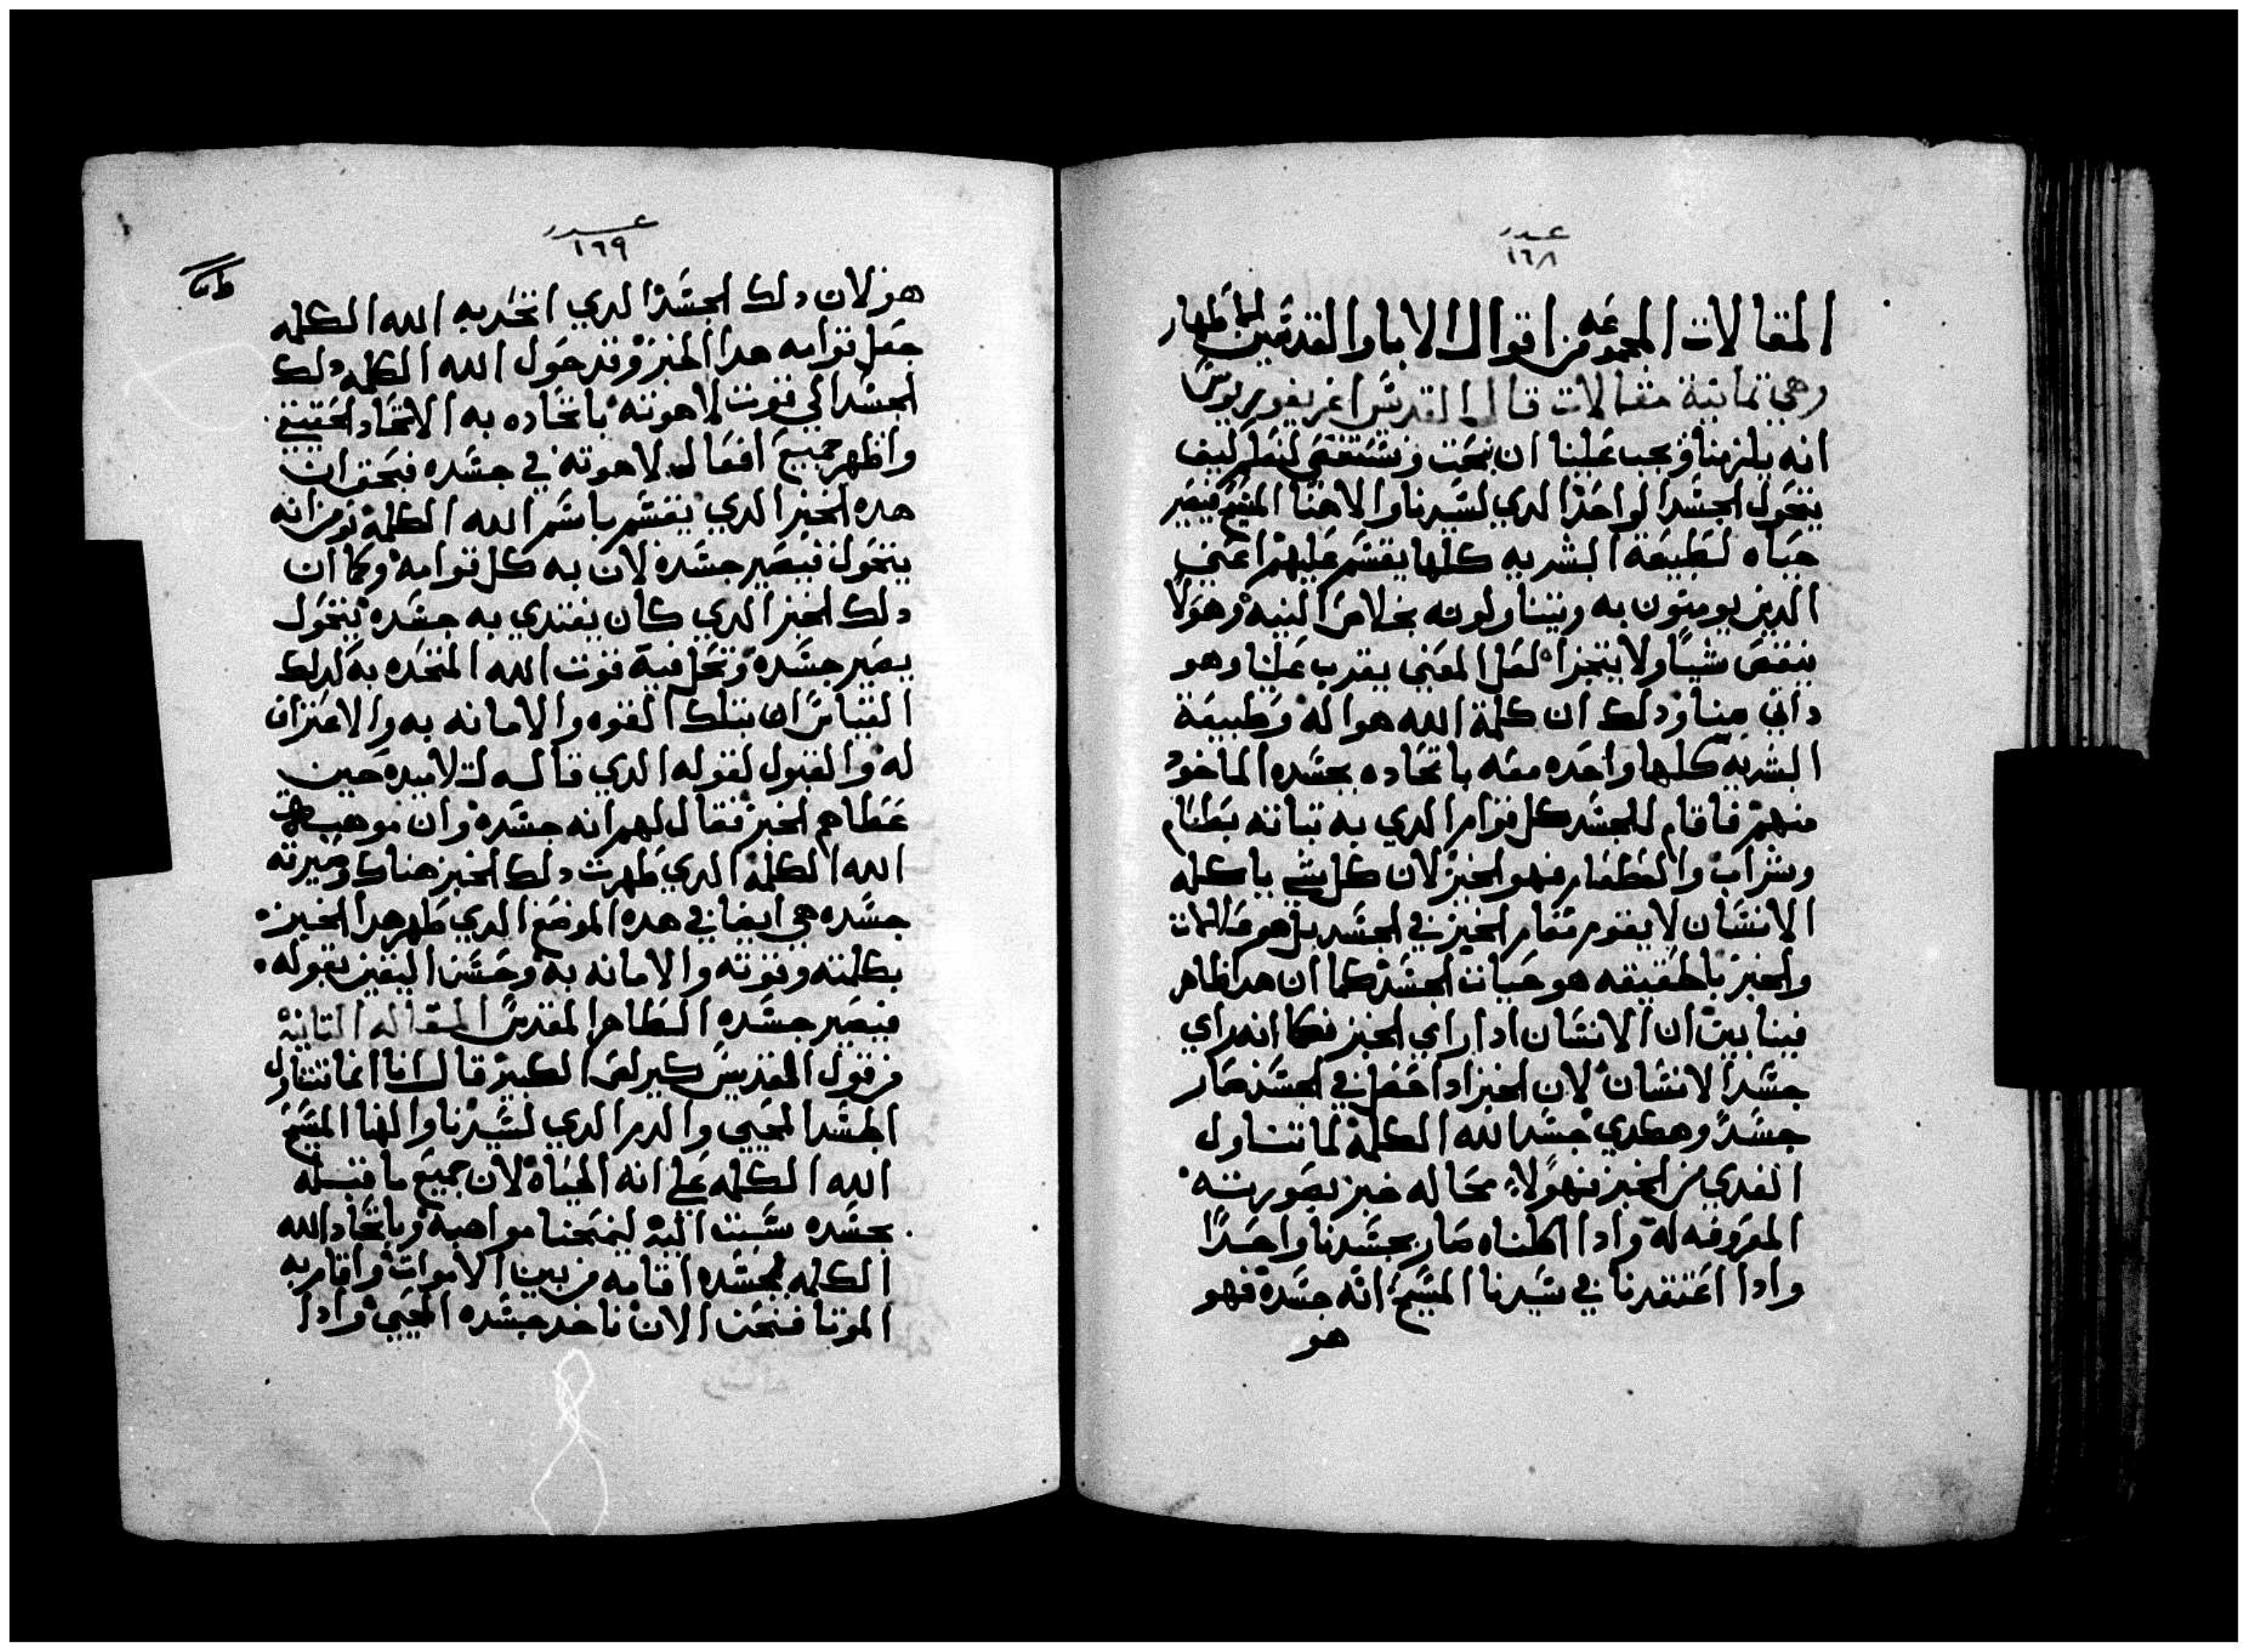 عدد
١٦٨
المقالات المجموعه من اقوال الابا والقديسين الاطهار
وهي تمانية مقالات قال القديس اغريغوريوس
انه يلزمنا ويجب علينا ان نبحت ونستقصي لنعلم كيف
يتحول الجسد الواحد الدي لسيدنا والاهنا المسيح فيصير
حياه لطبيعة البشريه كلها يقسم عليهم اعني
الدين يومنون به ويتناولونه بخلاص النيه وهو لا
ينقص شياً ولا يتجزا لعل المعني يقرب علينا وهو
داني منا ودلك ان كلمة الله هو اله وطبيعة
البشريه كلها واحده معه باتحاده بجسده الماخود
منهم فاقام للجسد كل قوام الدي به تباته بطعام
وشراب والطعام فهو الخبز لان كل شي ياكله
الانسان لا يقوم مقام الخبز في الجسد بل هو
والخبز بالحقيقه هو حيات الجسد كما ان هدا ظاهر
فينا بين ان الانسان ادا راي الخبز فكما انه راي
جسد الانسان لان الخبز ادا حصل في الجسد صار
جسدً وهكدي جسد الله الكلمة لما تناول
الغدي من الخبز فهو لا محاله خبز بصورته
المعروفه له وادا اكلناه صار بجسدنا واحداً
وادا اعتقدنا في سيدنا المسيح انه جسده فهو
هو
عدد
١٦٩
هو لان دلك الجسد الدي اتحد به الله الكلمه
جعل قوامه هدا الخبز وقد حول الله الكلمه دلك
الجسد الي قوت لاهوته باتحاده به الاتحاد الحقيقي
واظهر جميع افعال لاهوته في جسده فبحق ان
هده الخبز الدي يقسم باسم الله الكلمة نومن انه
يتحول فيصير جسده لان به كل قوامه وكما ان
دلك الخبز الدي كان يغتدي به جسده يتحول
يصير جسده وتحل فيه قوت الله المتحده به كدلك
القياس ان بتلك القوه والامانه به والاعتراف
له والقبول لقوله الدي قاله لتلاميده حين
عطاهم الخبز فقال لهم انه جسده وان موهبة
الله الكلمة الدي طهرت دلك الخبز هناك وصيرته
جسده هي ايضا في هده الموضع الدي طهر هدا الخبز
بكلمته وقوته والامانه به وحسن اليقين بقوله
فيصير جسده الطاهر المقدس المقاله التانية
من قول القديس كيرلص الكبير قال انا انما نتناول
الجسد المحيي والدم الدي لسيدنا والهنا المسيح
الله الكلمه علي انه الحياة لان جميع ما قبله
بجسده نسبت اليه ليمنحنا مواهبه وباتحاد الله
الكلمه بجسده اقامه من بين الاموات واقام به
الموتا فنحن الان ناخد جسده المحيي وادا